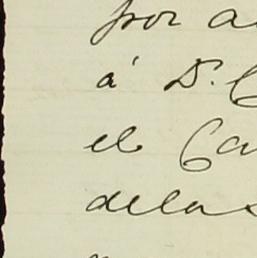 por a
á D. C
el Ca
delas